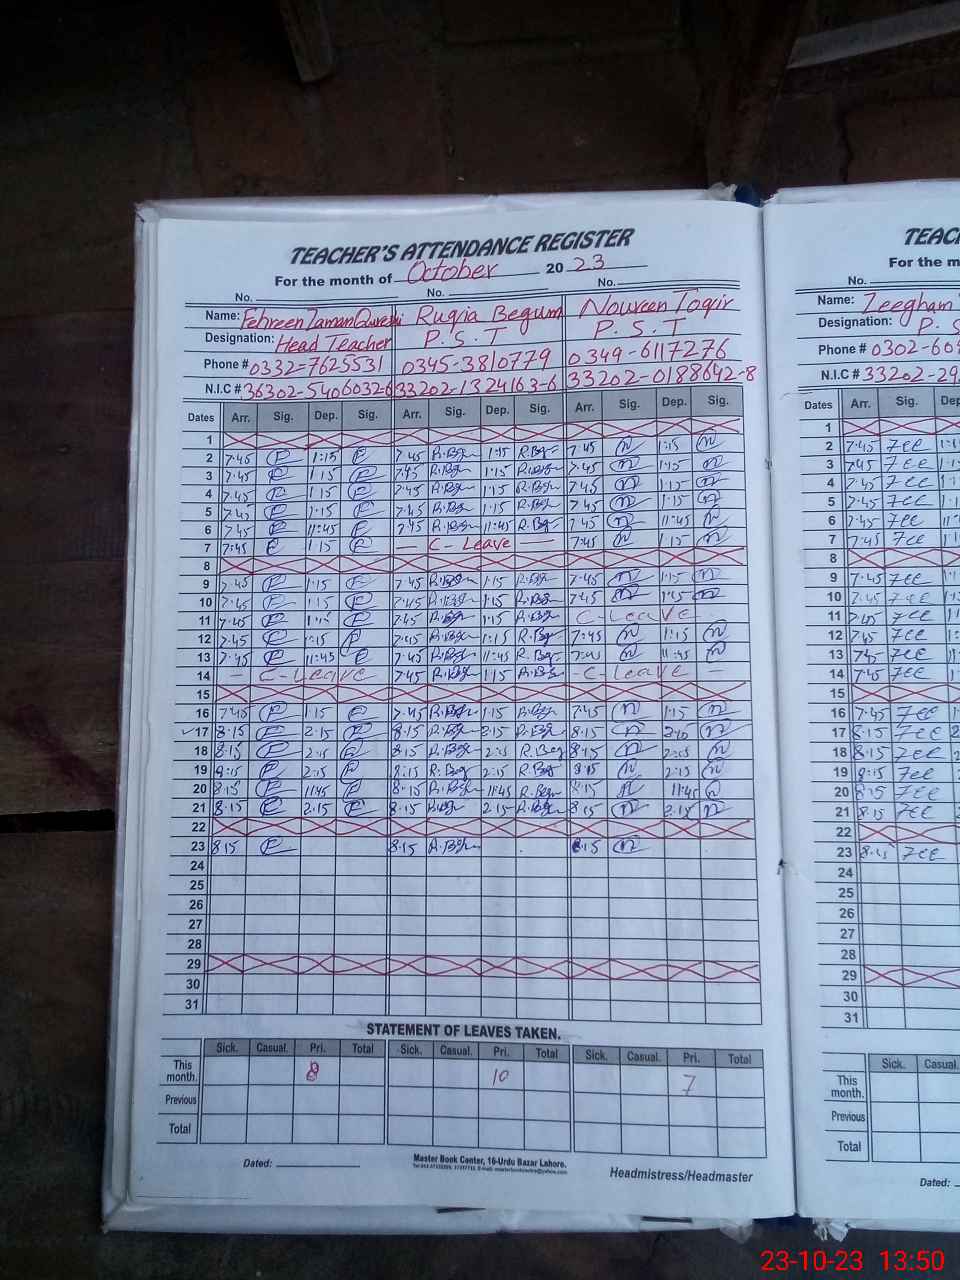 TEACHER'S ATTENDANCE REGISTER
For the month of October 2023
No. No. No.
Name: Fehreen Zaman Qureshi Ruqia Begum Noureen Toqir
Designation: Head Teacher P.S.T P.S.T
Phone # 0332-7625531 0345-3810779 0349-6117276
N.I.C # 36302-5406032-6 33202-1324163-6 33202-0188642-8
Dates Arr. Sig. Dep. Sig. Arr. Sig. Dep. Sig. Arr. Sig. Dep. Sig.
1
2 7:45 1:15 7:45 R.Bgm 1:15 R.Bgm 7:45 1:15
3 7:45 1:15 7:45 R.Bgm 1:15 R.Bgm 7:45 1:15
4 7:45 1:15 7:45 R.Bgm 1:15 R.Bgm 7:45 1:15
5 7:45 1:15 7:45 R.Bgm 1:15 R.Bgm 7:45 1:15
6 7:45 11:45 7:45 R.Bgm 11:45 R.Bgm 7:45 11:45
7 7:45 1:15 — C-Leave — 7:45 1:15
8
9 7:45 1:15 7:45 R.Bgm 1:15 R.Bgm 7:45 1:15
10 7:45 1:15 7:45 R.Bgm 1:15 R.Bgm 7:45 1:45
11 7:45 1:15 7:45 R.Bgm 1:15 R.Bgm C-Leave
12 7:45 1:15 7:45 R.Bgm 1:15 R.Bgm 7:45 1:15
13 7:45 11:45 7:45 R.Bgm 11:45 R.Bgm 7:45 11:45
14 — C-Leave 7:45 R.Bgm 1:15 R.Bgm — C-Leave —
15
16 7:45 1:15 7:45 R.Bgm 1:15 R.Bgm 7:45 1:15
17 8:15 2:15 8:15 R.Bgm 2:15 R.Bgm 8:15
18 8:15 2:15 8:15 R.Bgm 2:15 R.Bgm 8:15
19 8:15 2:15 8:15 R.Bgm 2:15 R.Bgm 8:15 2:15
20 8:15 11:45 8:15 R.Bgm 11:45 R.Bgm 8:15 11:45
21 8:15 2:15 8:15 R.Bgm 2:15 R.Bgm 8:15 2:15
22
23 8:15 8:15 R.Bgm 8:15
24
25
26
27
28
29
30
31
STATEMENT OF LEAVES TAKEN.
Sick. Casual. Pri. Total Sick. Casual. Pri. Total Sick. Casual. Pri. Total
This month. 8 10 7
Previous
Total
Dated:
Master Book Center, 16-Urdu Bazar Lahore.
Headmistress/Headmaster
TEAC
For the m
No.
Name: Zeegham
Designation: P. S
Phone # 0302-60
N.I.C # 33202-29
Dates Arr. Sig. Dep
1
2 7:45 Zee
3 7:45 Zee
4 7:45 Zee
5 7:45 Zee
6 7:45 Zee
7 7:45 Zee
8
9 7:45 Zee
10 7:45 Zee
11 7:45 Zee
12 7:45 Zee
13 7:45 Zee
14 7:45 Zee
15
16 7:45 Zee
17 8:15 Zee
18 8:15 Zee
19 8:15 Zee
20 8:15 Zee
21 8:15 Zee
22
23 8:15 Zee
24
25
26
27
28
29
30
31
Sick. Casual.
This month.
Previous
Total
Dated:
23-10-23 13:50